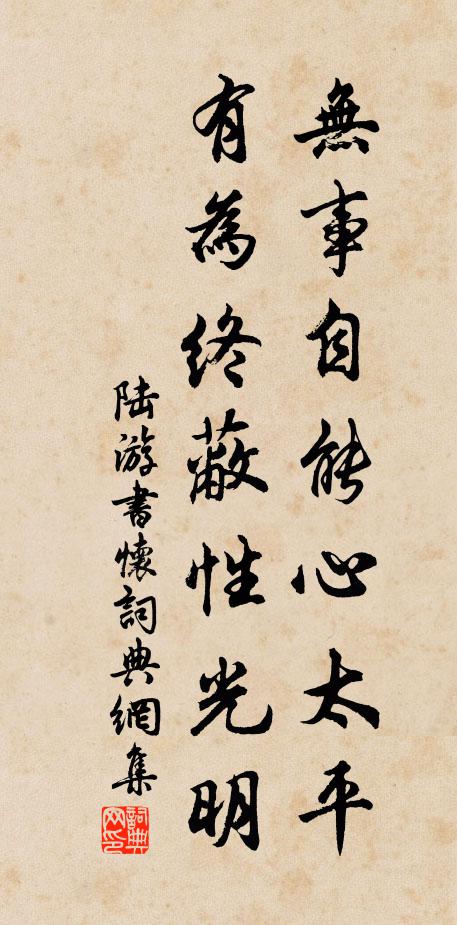 無事自能心太平
有為終蔽性光明
陸游書懷詞典網集
詞典网印